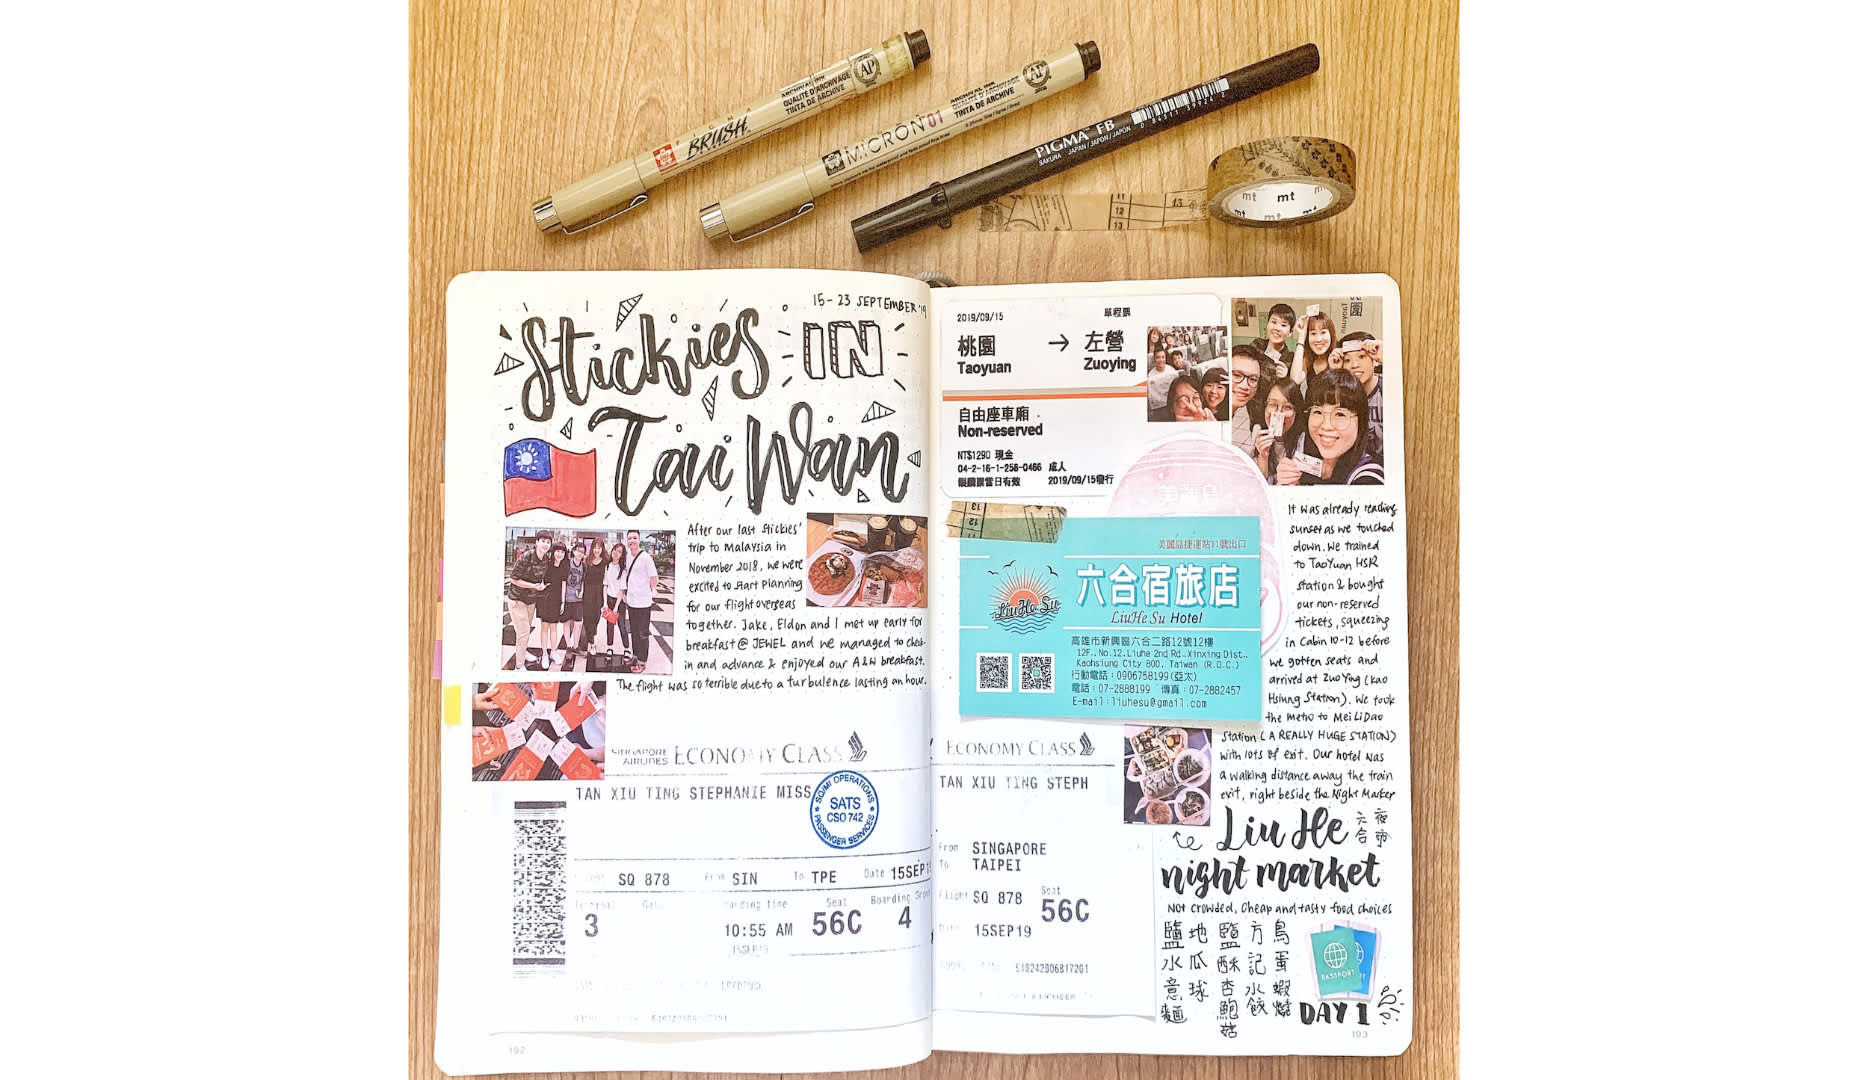 BRUSH
ARCHIVAL INK
QUALITÉ D'ARCHIVAGE
TINTA DE ARCHIVE
AP
MICRON 01
ARCHIVAL INK
TINTA DE ARCHIVE
AP
PIGMA FB
SAKURA JAPAN/JAPON/JAPÓN
mt mt mt
11
12
13
13
15-23 SEPTEMBER '19
Stickies IN
Taiwan
After our last stickies'
trip to Malaysia in
November 2018, we were
excited to start planning
for our flight overseas
together. Jake, Eldon and I met up early for
breakfast @ JEWEL and we managed to check
in and advance & enjoyed our A&W breakfast.
The flight was so terrible due to a turbulence lasting an hour.
SINGAPORE
AIRLINES
ECONOMY CLASS
TAN XIU TING STEPHANIE MISS
SQ/MI OPERATIONS
SATS
CSO 742
PASSENGER SERVICES
SQ 878
From SIN
To TPE
Date 15SEP19
Terminal
Gate
Boarding time
Seat
Boarding Group
3
10:55 AM
56C
4
15SEP19
192
2019/09/15
單程票
桃園 → 左營
Taoyuan Zuoying
自由座車廂
Non-reserved
NT$1290 現金
04-2-16-1-258-0466 成人
2019/09/15發行
美麗島
12
13
美麗島捷運站11號出口
六合宿旅店
LiuHe Su
LiuHe Su Hotel
高雄市新興區六合二路12號12樓
12F., No.12, Liuhe 2nd Rd., Xinxing Dist.,
Kaohsiung City 800, Taiwan (R.O.C.)
行動電話：0906758199(亞太)
電話：07-2888199 傳真：07-2882457
E-mail:liuhesu@gmail.com
It was already reaching
sunset as we touched
down. We trained
to TaoYuan HSR
station & bought
our non-reserved
tickets, squeezing
in Cabin 10-12 before
we gotten seats and
arrived at ZuoYing (Kao
Hsiung Station). We took
the metro to MeiLiDao
station (A REALLY HUGE STATION)
with lots of exit. Our hotel was
a walking distance away the train
exit, right beside the Night Market
ECONOMY CLASS
TAN XIU TING STEPH
From SINGAPORE
To TAIPEI
Flight SQ 878
Seat 56C
15SEP19
618242806817201
Liu He
六合夜市
night market
Not crowded, cheap and tasty food choices
鹽水意麵
地瓜球
鹽酥杏鮑菇
方記水餃
鳥蛋蝦燒
PASSPORT
DAY 1
193